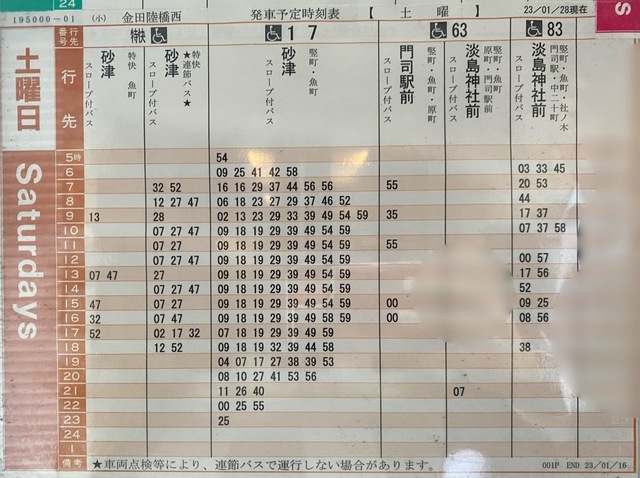 24
195000-01 (小) 金田陸橋西 発車予定時刻表 【 土 曜 】 23/01/28現在
S
行先番号 特快 17 63 83
土曜日
Saturdays
行先
砂津 特快 魚町 スロープ付バス
砂津 特快 ★連節バス★ スロープ付バス
砂津 竪町・魚町 スロープ付バス
門司駅前 竪町・魚町・原町 スロープ付バス
淡島神社前 竪町・魚町 原町・門司駅前 スロープ付バス
淡島神社前 竪町・魚町・社ノ木 門司駅・中二十町 スロープ付バス
5時 54
6 09 25 41 42 58 03 33 45
7 32 52 16 16 29 37 44 56 56 55 20 53
8 12 27 47 06 18 23 27 29 37 46 52 44
9 13 28 02 13 23 29 33 39 49 54 59 35 17 37
10 07 27 47 09 18 19 29 39 49 54 59 07 37 58
11 07 27 09 18 19 29 39 49 54 59 55
12 07 27 47 09 18 19 29 39 49 54 59 00 57
13 07 47 27 09 18 19 29 39 49 54 59 17 56
14 07 27 47 09 18 19 29 39 49 54 59 52
15 47 07 27 09 18 19 29 39 49 54 59 00 09 25
16 32 07 47 09 18 19 29 39 49 58 59 00 08 56
17 52 02 17 32 07 18 19 29 39 49 59
18 12 52 09 18 19 32 39 44 58 38
19 04 07 17 27 38 39 53
20 08 10 27 41 53 56
21 11 26 40 07
22 00 25 55
23 25
24
1
備考 ★車両点検等により、連節バスで運行しない場合があります。 001P END 23/01/16